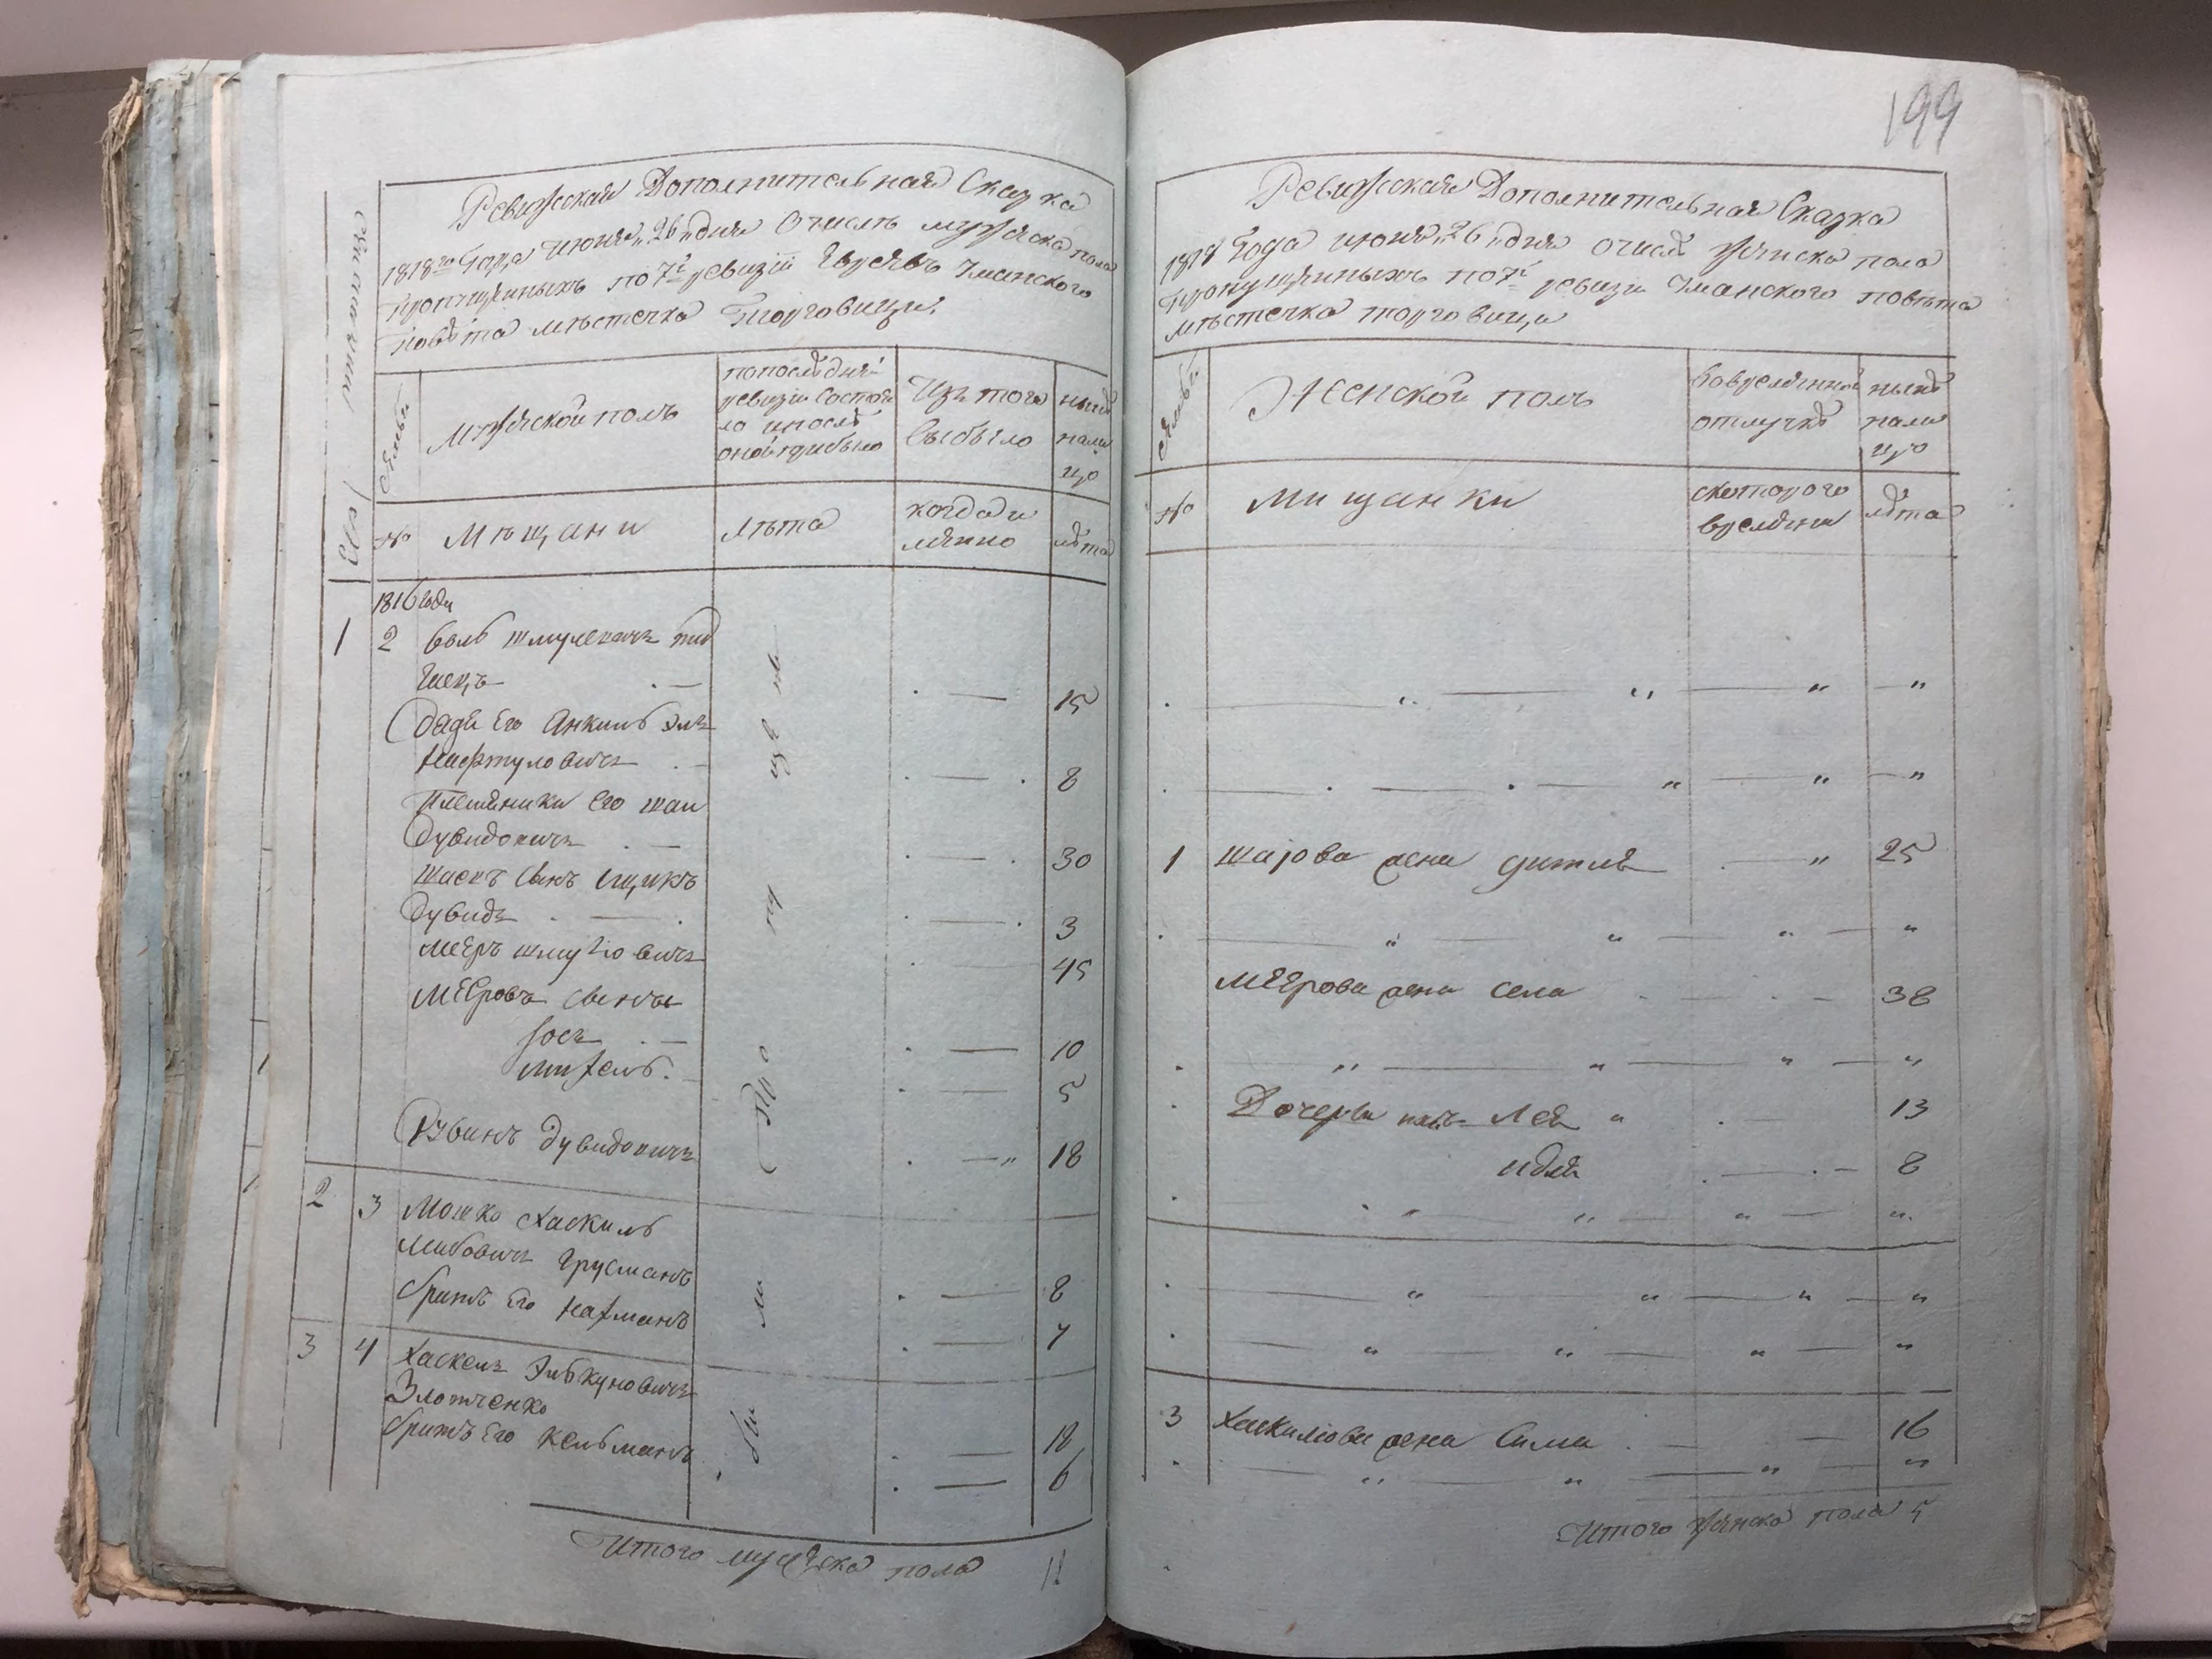 Ревижская Дополнительная Сказка
1818го Года июня „26„ дня О числѣ мужеска пола
пропущенныхъ по 7й ревизіи Евреевъ Уманского
Повѣта мѣстечка Торговици.
Семьи
Мужеской полъ
по послѣдней
ревизіи состоя
ло и послѣ
оной прибыло
Изъ того
выбыло
нынѣ
нали
цо
№
Мѣщани
Лѣта
когда и
лѣта
1816 года
1 2
Дядя Его Анкиль Эль
Нафтуловичъ 8
Племѣники Его Шаи
Дувидовичъ 30
Шаевъ Сынъ Ицикъ
Дувидъ 3
Меѣръ Шмулiовичъ 45
Меѣровъ Сыны
Іосъ 10
Михель 5
Рувинъ Дувидовичъ 18
2 3 Мошко Хаскиль
Лейбовичъ Грусманъ 8
братъ Его Нахманъ 7
3 4 Хаскель Элькуновичъ
Злотченко 18
братъ Его Кельманъ 6
Итого мужеска пола 12
199
Ревижская Дополнительная Сказка
1818 Года июня „26„ дня О числѣ женска пола
пропущенныхъ по 7й ревизіи Уманского повѣта
мѣстечка торговици
Семьи
Женской полъ
во временной
отлучкѣ
нынѣ
нали
цо
№
Мищанки
с котораго
времени
лѣта
1 Шаіова жена 25
Меѣрова жена Села 38
Дочери ихъ Лея 13
8
3 Хаскиліова жена Сима 16
Итого женска пола 5